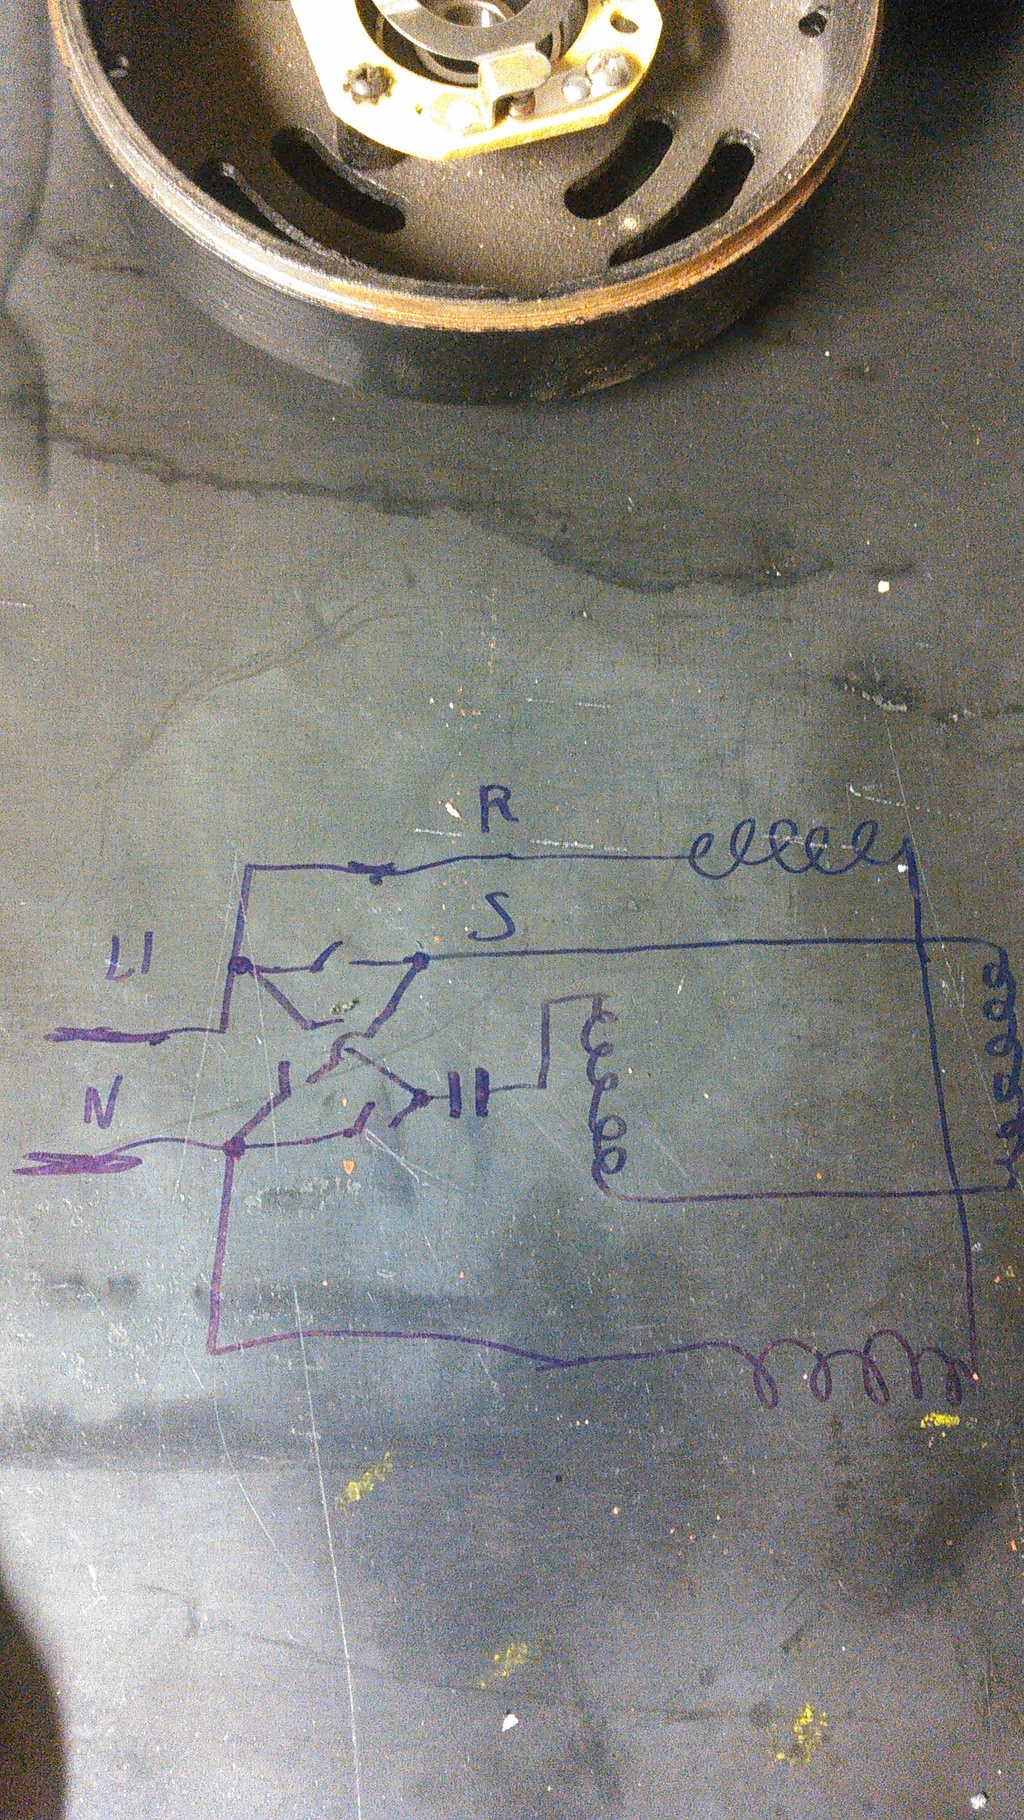 R
S
L1
N